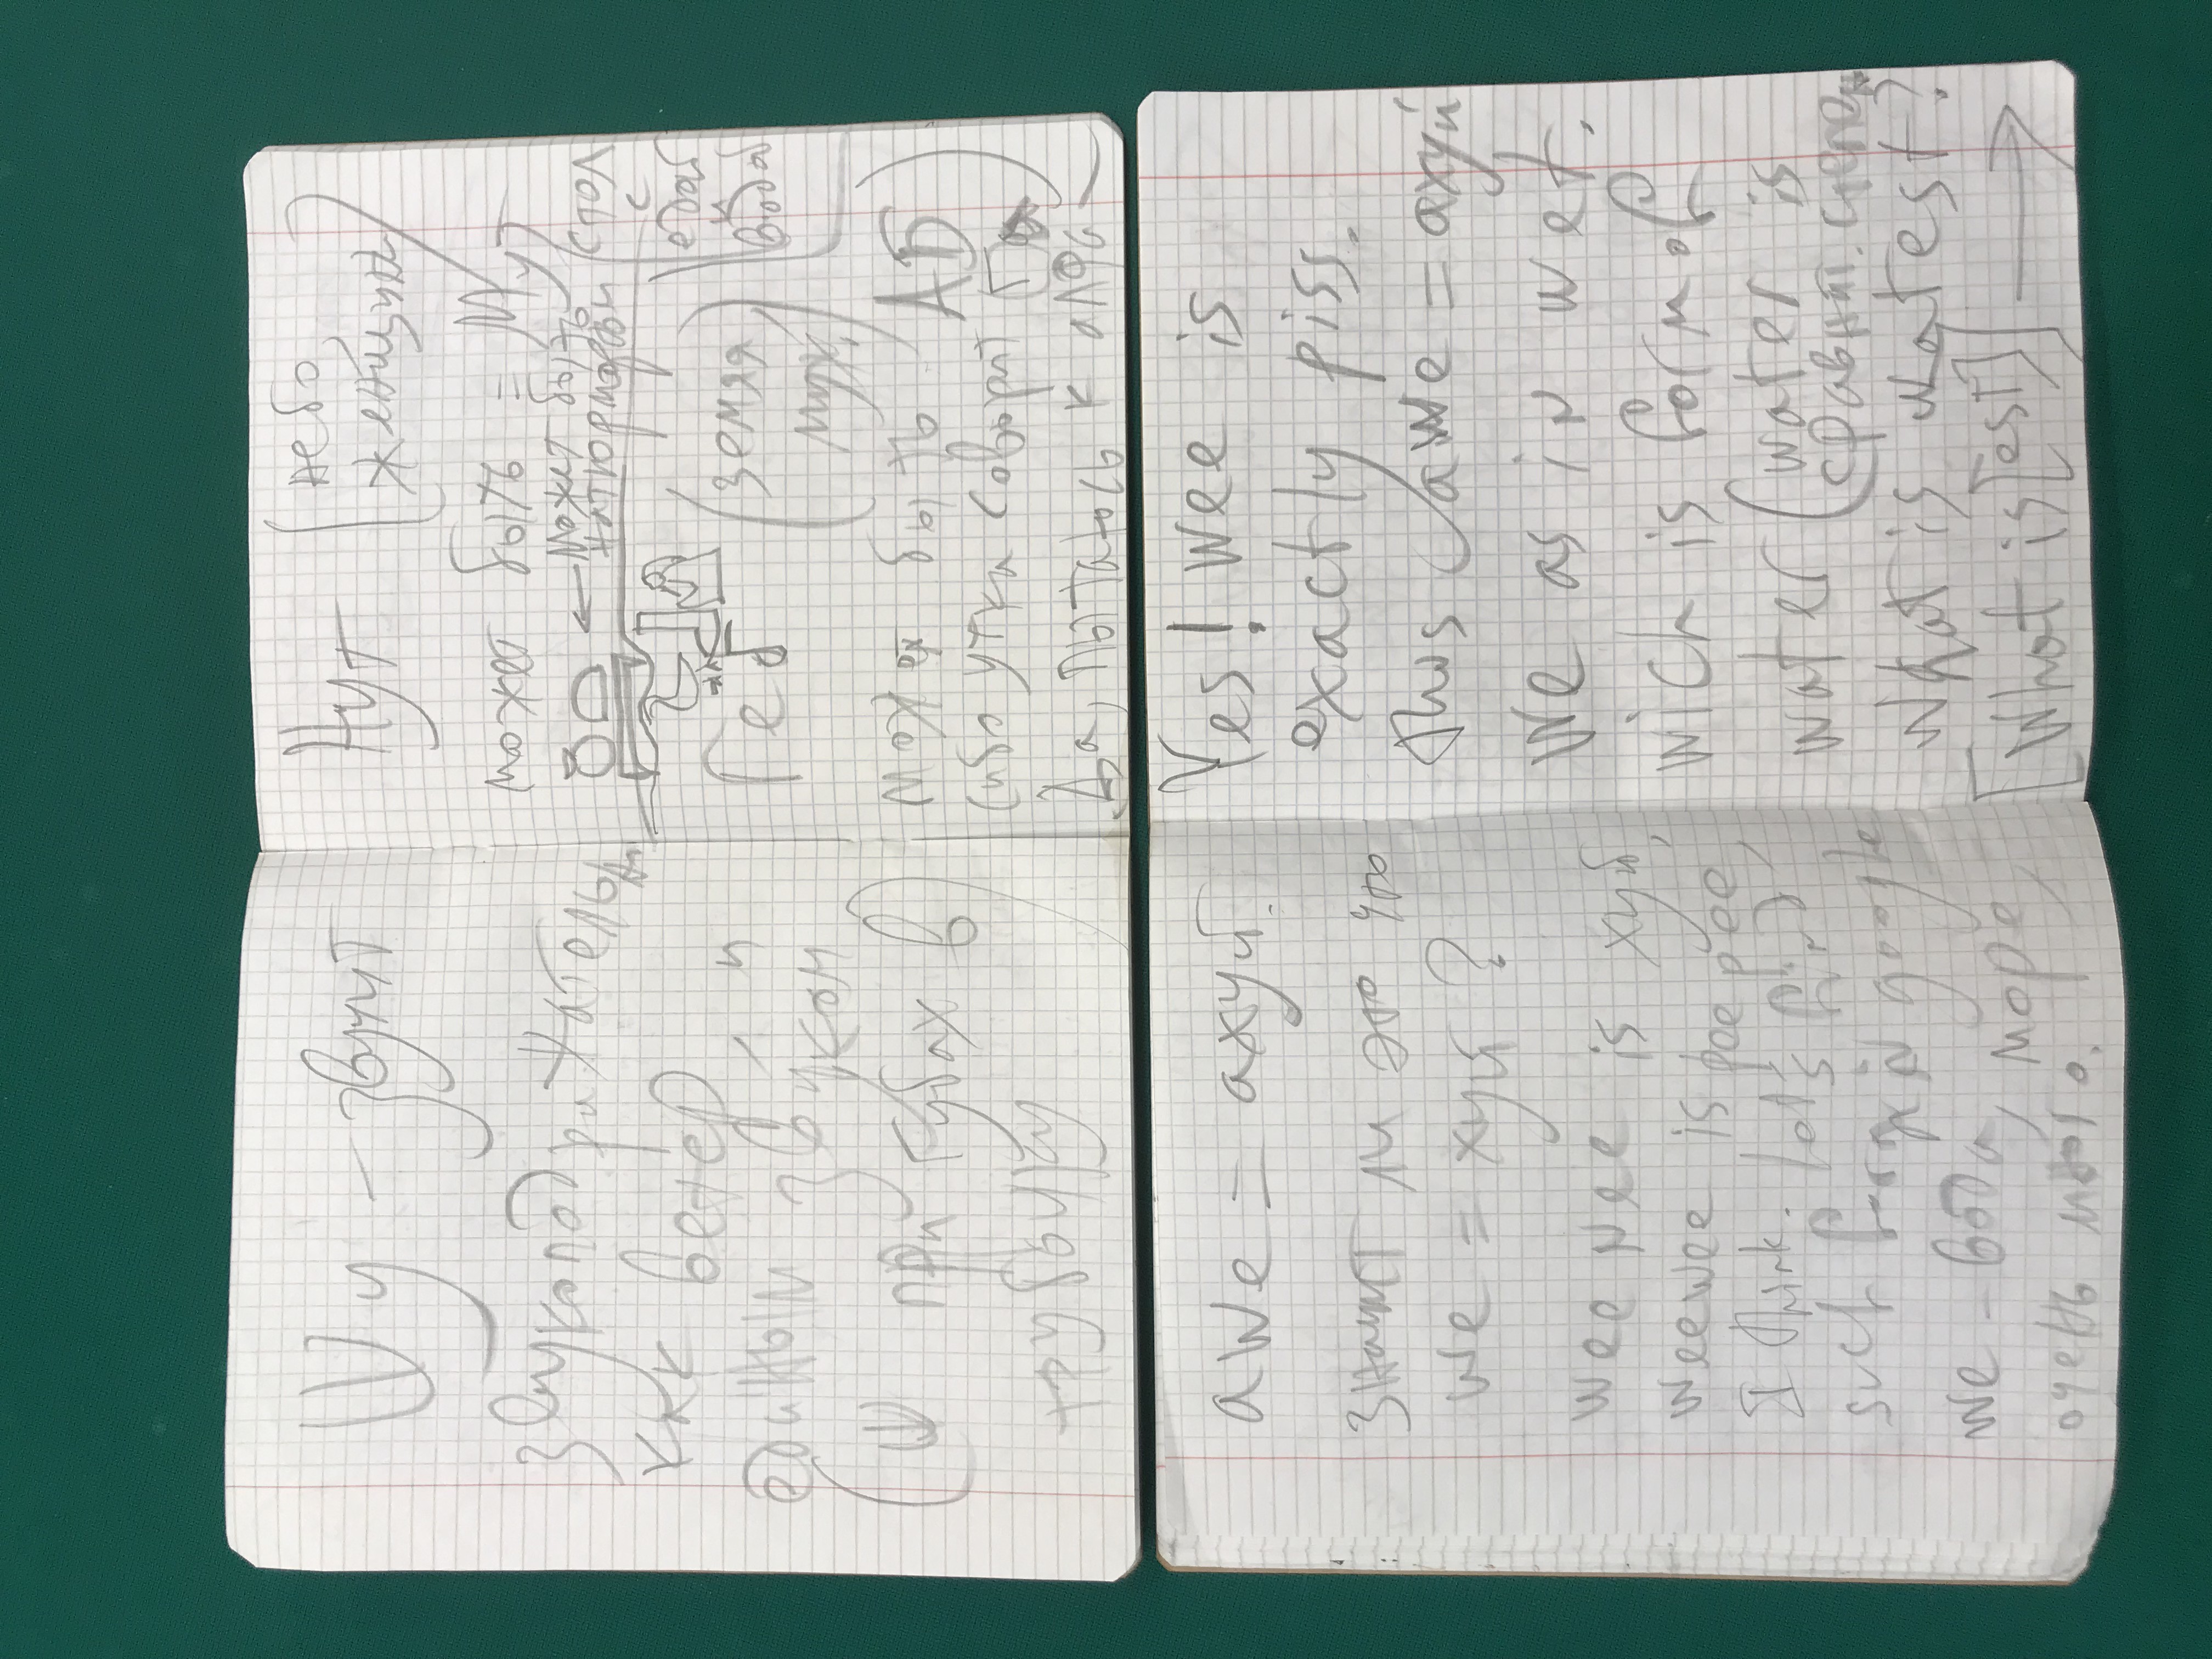 Шу – звучит
звукоподражательно
как ветер
единым звуком
(Ш при губах в
трубочку)
Нут (небо,
женщина)
может быть = Мут
← Может быть
стол
с
едой
и
водой
Геб (земля
муж.)
может быть АБ
(ибо утка говорит Га)
Да, пытаюсь к алфа–
awe = ахуй.
Значит ли это что
we = хуй ?
wee nee is хуй,
weewee is pee pee,
I think. let's find
such forms in google
we – вода, море,
очень много.
Yes! wee is
exactly piss.
thus awe = ахуй
We as in wet.
wich is form of
water (water is
сравнит. степень
What is watest?
[What is [est]] →